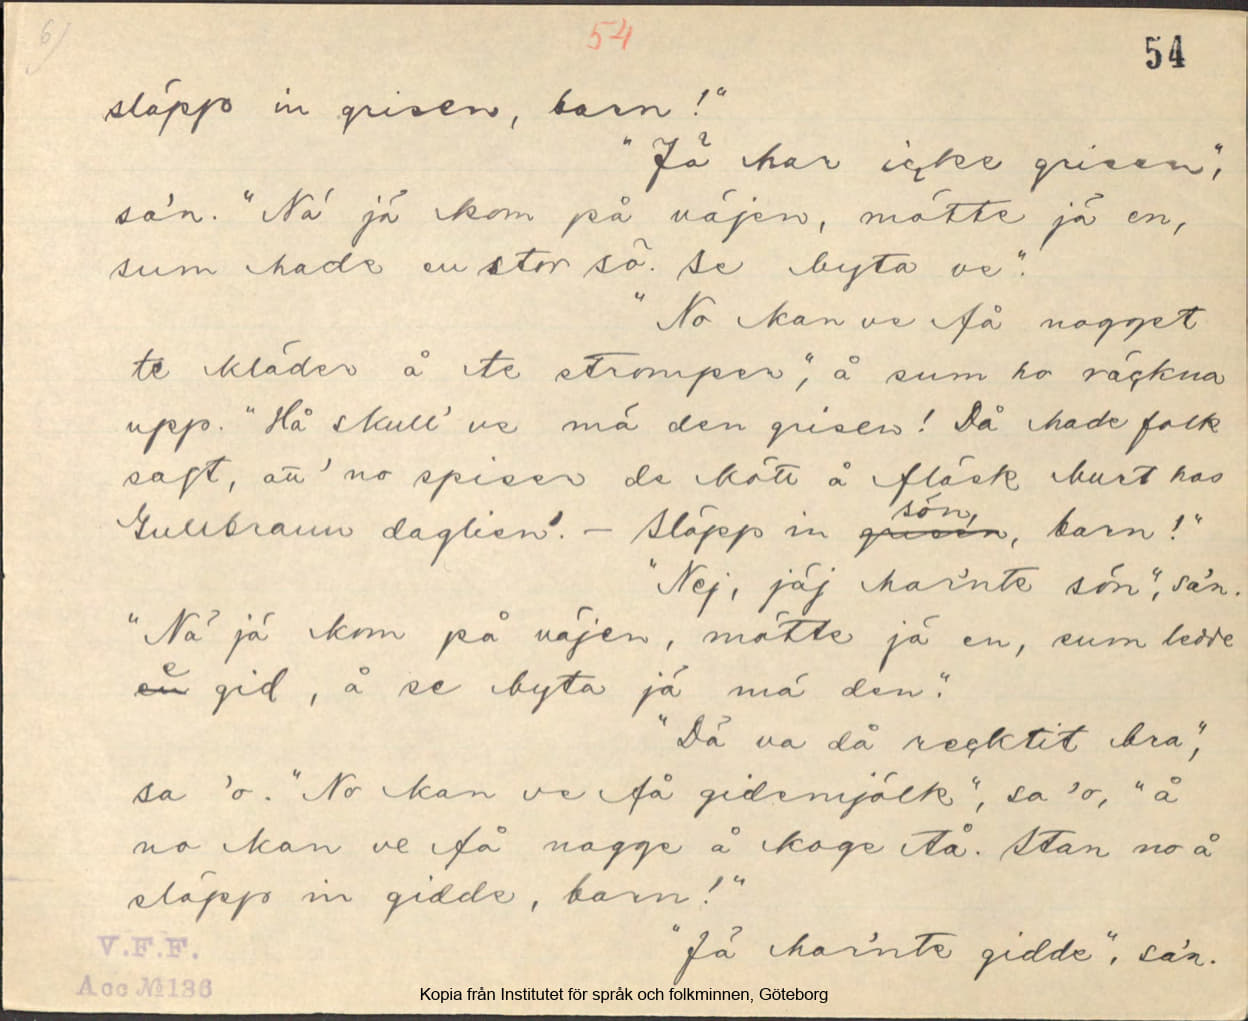 6)
54
54
släpp in grisen, barn!"
"Jä har icke grisen",
sa'n. "Nä jä kom på väjen, mötte jä en,
sum hade en stor sö. Se byta ve".
"No kan ve få nogget
te kläder å te strømper", å sum ho räckna
upp. "Hå skull' ve mä den grisen! Då hade folk
sagt, att' no spiser de kött å fläsk burt hos
Gullbrann daglien'. – Släpp in grisen sön, barn!"
"Nej, jäj har'nte sön", sa'n.
"Nä jä kom på väjen, mötte jä en, sum ledde
en e gid, å se byta jä mä den".
"Dä va då recktit bra",
sa 'o. "No kan ve få gidemjölk", sa 'o, "å
no kan ve få nogge å koge tå. Stan no å
släpp in gidde, barn!"
"Jä har'nte gidde", sa'n.
V.F.F.
Acc №136
Kopia från Institutet för språk och folkminnen, Göteborg